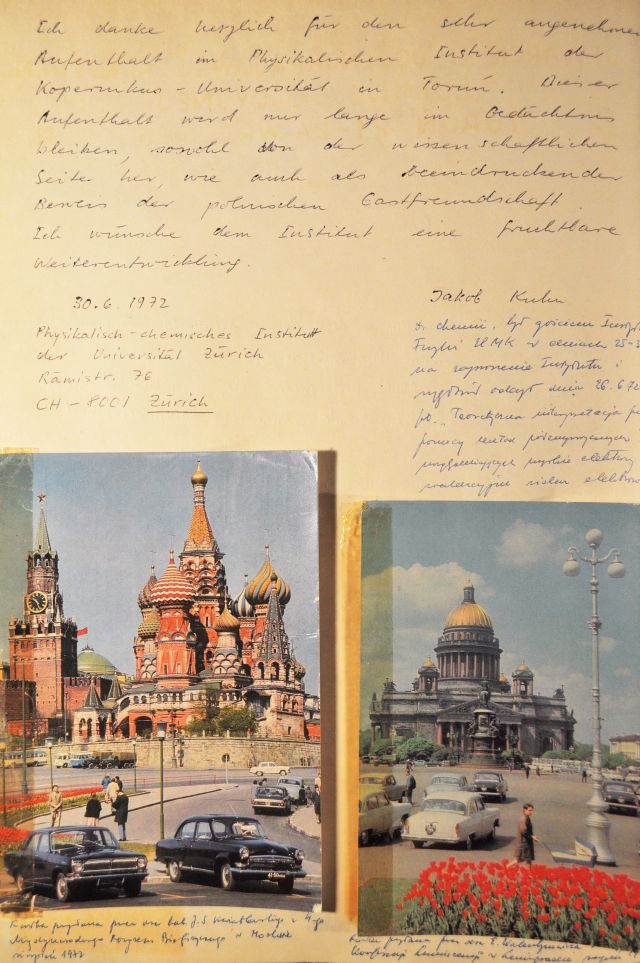 Ich danke herzlich für den sehr angenehmen
Aufenthalt im Physikalischen Institut der
Kopernikus-Universität in Toruń. Dieser
Aufenthalt wird mir lange im Gedächtnis
bleiben, sowohl von der wissenschaftlichen
Seite her, wie auch als beeindruckender
Beweis der polnischen Gastfreundschaft.
Ich wünsche dem Institut eine fruchtbare
Weiterentwicklung.
30.6.1972
Jakob Kuhn
Physikalisch-chemisches Institut
der Universität Zürich
Rämistr. 76
CH-8001 Zürich
Dr chemii, był gościem
Fizyki UMK w dniach 25-
na zaproszenie Instytutu i
wygłosił odczyt dnia 26.6.
pt. "Teoretyczna interpretacja
pomocy
uwzględniających
Kartka przysłana przez
Międzynarodowego Kongresu Biofizycznego w Moskwie
sierpień 1972
Kartka przysłana przez
Konferencji Luminescencji w Leningradzie